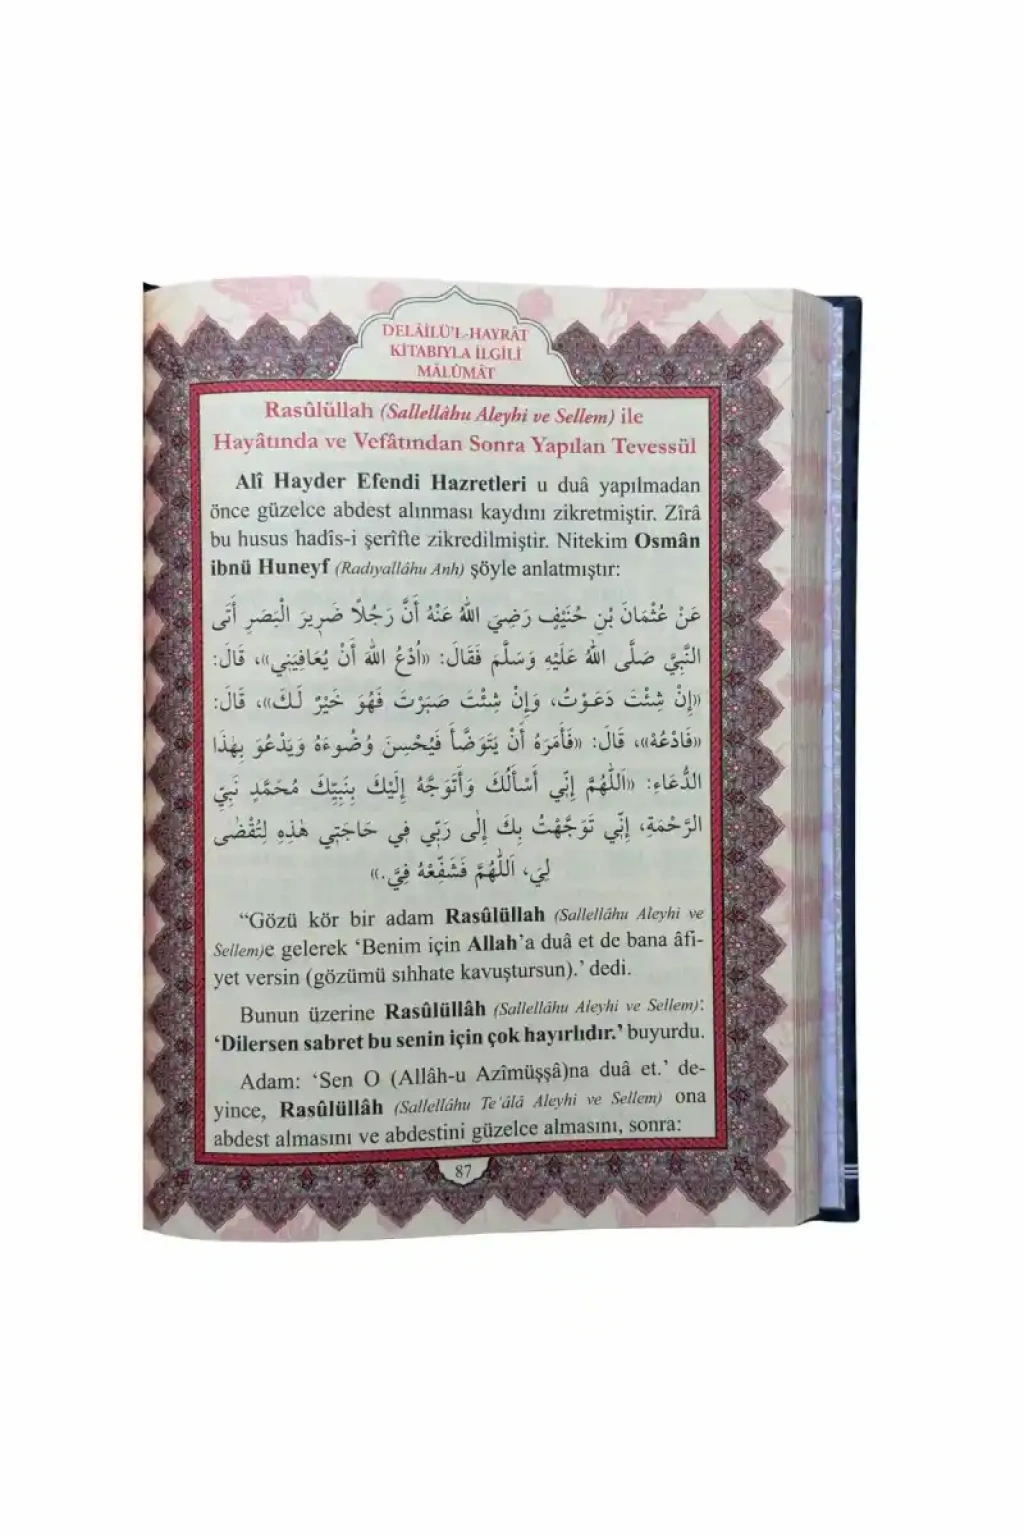 DELÂİLÜ'L-HAYRÂT
KİTABIYLA İLGİLİ
MÂLÛMÂT
Rasûlüllah (Sallellâhu Aleyhi ve Sellem) ile
Hayâtında ve Vefâtından Sonra Yapılan Tevessül
Alî Hayder Efendi Hazretleri u duâ yapılmadan
önce güzelce abdest alınması kaydını zikretmiştir. Zîrâ
bu husus hadîs-i şerîfte zikredilmiştir. Nitekim Osmân
ibnü Huneyf (Radıyallâhu Anh) şöyle anlatmıştır:
عَنْ عُثْمَانَ بْنِ حُنَيْفٍ رَضِيَ اللّٰهُ عَنْهُ أَنَّ رَجُلًا ضَرِيرَ الْبَصَرِ أَتَى
النَّبِيَّ صَلَّى اللّٰهُ عَلَيْهِ وَسَلَّمَ فَقَالَ: «اُدْعُ اللّٰهَ أَنْ يُعَافِيَنِي»، قَالَ:
«إِنْ شِئْتَ دَعَوْتُ، وَإِنْ شِئْتَ صَبَرْتَ فَهُوَ خَيْرٌ لَكَ»، قَالَ:
«فَادْعُهْ»، قَالَ: «فَأَمَرَهُ أَنْ يَتَوَضَّأَ فَيُحْسِنَ وُضُوءَهُ وَيَدْعُوَ بِهٰذَا
الدُّعَاءِ: «اَللّٰهُمَّ إِنِّي أَسْأَلُكَ وَأَتَوَجَّهُ إِلَيْكَ بِنَبِيِّكَ مُحَمَّدٍ نَبِيِّ
الرَّحْمَةِ، إِنِّي تَوَجَّهْتُ بِكَ إِلٰى رَبِّي فِي حَاجَتِي هٰذِهِ لِتُقْضٰى
لِيَ، اَللّٰهُمَّ فَشَفِّعْهُ فِيَّ.»
“Gözü kör bir adam Rasûlüllah (Sallellâhu Aleyhi ve
Sellem)e gelerek ‘Benim için Allah’a duâ et de bana âfi-
yet versin (gözümü sıhhate kavuştursun).’ dedi.
Bunun üzerine Rasûlüllâh (Sallellâhu Aleyhi ve Sellem):
‘Dilersen sabret bu senin için çok hayırlıdır.’ buyurdu.
Adam: ‘Sen O (Allâh-u Azîmüşşâ)na duâ et.’ de-
yince, Rasûlüllâh (Sallellâhu Te'âlâ Aleyhi ve Sellem) ona
abdest almasını ve abdestini güzelce almasını, sonra:
87